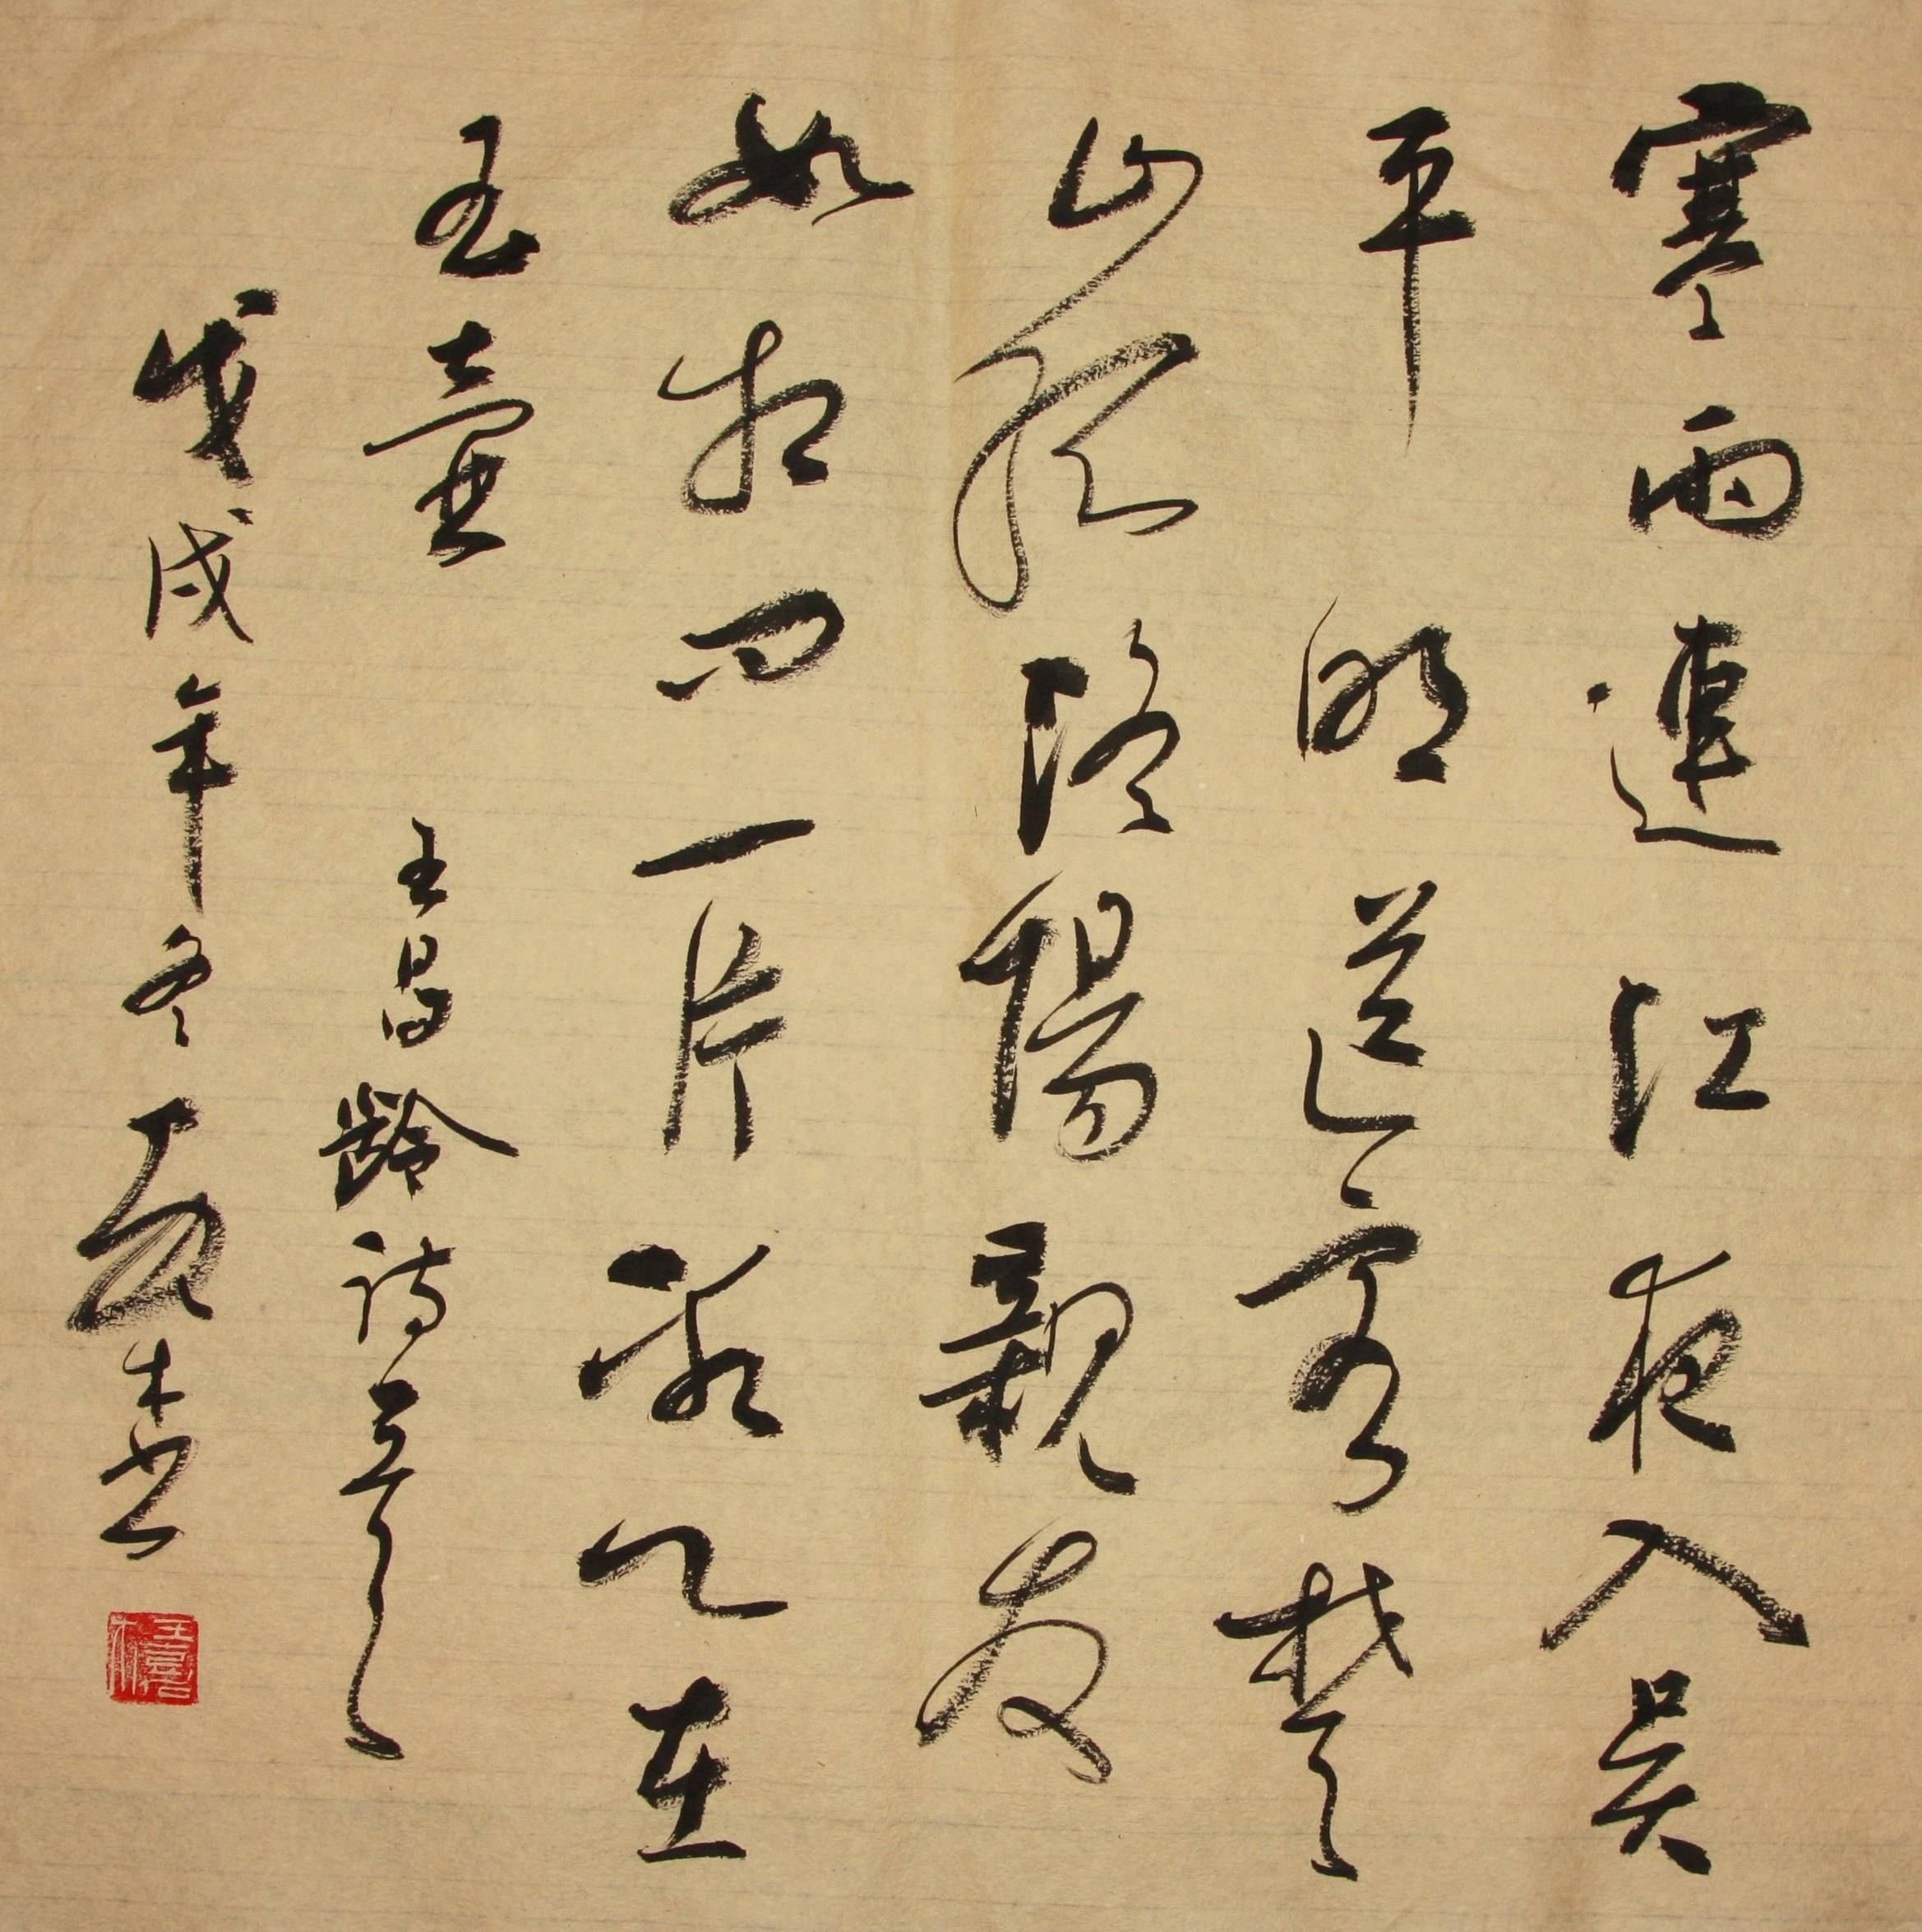 寒雨連江夜入吳
平明送客楚
山孤洛陽親友
如相問一片冰心在
玉壺 王昌齡詩
戊戌年冬